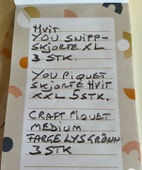 HVIT
YOU SNIPP-
SKJORTE XL
3 STK.
YOU PIQUET
SKJORTE HVIT
XXL 5STK.
CRAFT PIQUET
MEDIUM
FARGE LYSGRØNN
3 STK